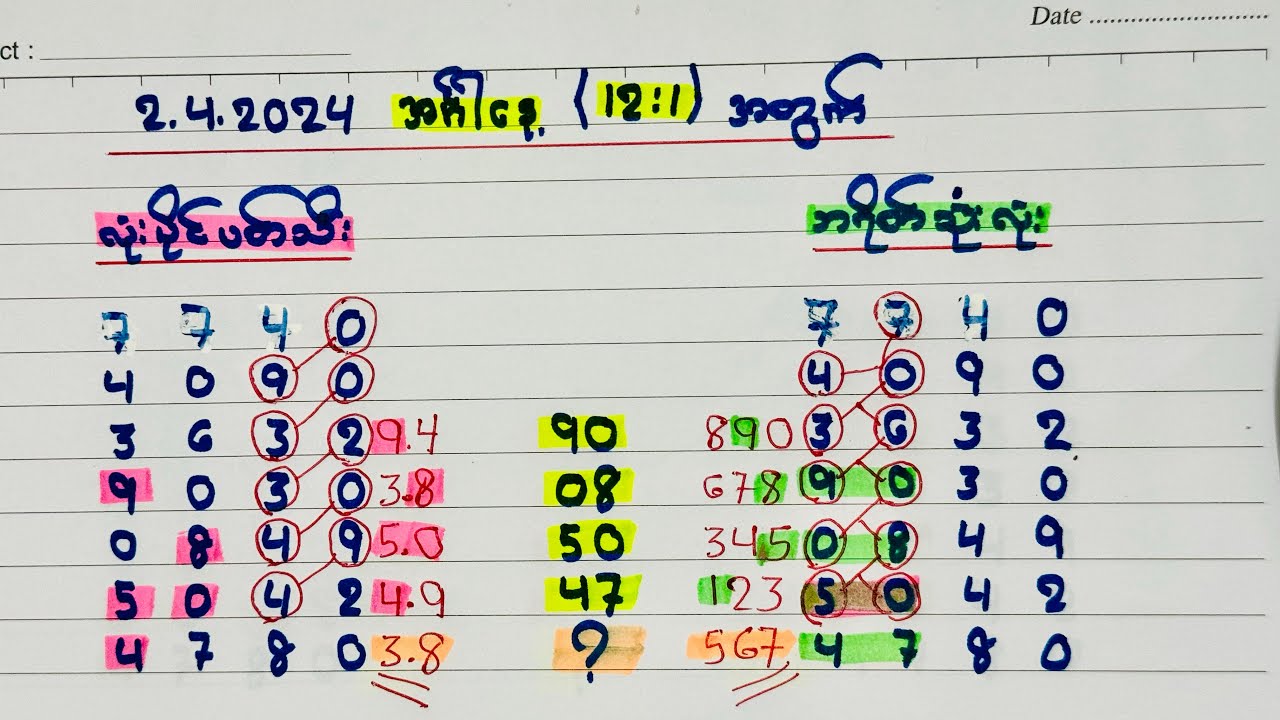 ct :
Date
2.4.2024 အင်္ဂါနေ့ (12:1) အတွက်
လုံးပိုင်ပတ်သီး အဂိတ်သုံးလုံး
7 7 4 0 7 7 4 0
4 0 9 0 4 0 9 0
3 6 3 2 9.4 90 890 3 6 3 2
9 0 3 0 3.8 08 678 9 0 3 0
0 8 4 9 5.0 50 345 0 8 4 9
5 0 4 2 4.9 47 123 5 0 4 2
4 7 8 0 3.8 ? 567 4 7 8 0